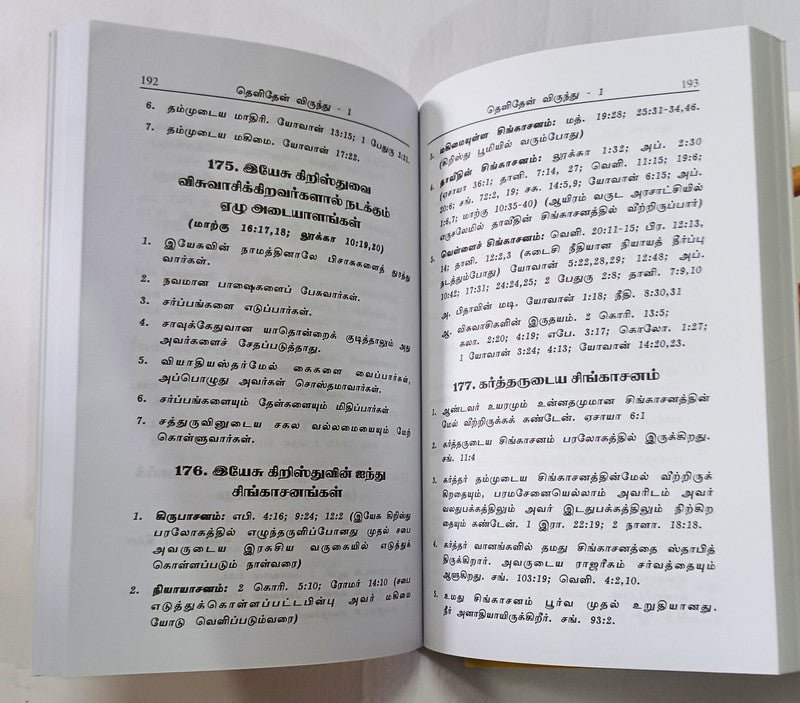 192
தெவிதேன் விருந்து - 1
6. தம்முடைய மாதிரி. யோவான் 13:15; 1 பேதுரு 2:21.
7. தம்முடைய மகிமை. யோவான் 17:22.
175. இயேசு கிறிஸ்துவை
விசுவாசிக்கிறவர்களால் நடக்கும்
ஏழு அடையாளங்கள்
(மாற்கு 16:17,18; லூக்கா 10:19,20)
1. இயேசுவின் நாமத்தினாலே பிசாசுகளைத் துரத்து
வார்கள்.
2. நவமான பாஷைகளைப் பேசுவார்கள்.
3. சர்ப்பங்களை எடுப்பார்கள்.
4. சாவுக்கேதுவான யாதொன்றைக் குடித்தாலும் அது
அவர்களைச் சேதப்படுத்தாது.
5. வியாதியஸ்தர்மேல் கைகளை வைப்பார்கள்,
அப்பொழுது அவர்கள் சொஸ்தமாவார்கள்.
6. சர்ப்பங்களையும் தேள்களையும் மிதிப்பார்கள்
7. சத்துருவினுடைய சகல வல்லமையையும் மேற்
கொள்ளுவார்கள்.
176. இயேசு கிறிஸ்துவின் ஐந்து
சிங்காசனங்கள்
1. கிருபாசனம்: எபி. 4:16; 9:24; 12:2 (இயேசு கிறிஸ்து
பரலோகத்தில் எழுந்தருளிப்போனது முதல் சபை
அவருடைய இரகசிய வருகையில் எடுத்துக்
கொள்ளப்படும் நாள்வரை)
2. நியாயாசனம்: 2 கொரி. 5:10; ரோமர் 14:10 (சபை
எடுத்துக்கொள்ளப்பட்டபின்பு அவர் மகிமை
யோடு வெளிப்படும்வரை)
தெவிதேன் விருந்து - 1
193
3. மகிமையுள்ள சிங்காசனம்: மத். 19:28; 25:31-34,46.
(கிறிஸ்து பூமியில் வரும்போது)
4. தாவீதின் சிங்காசனம்: லூக்கா 1:32; அப். 2:30
(ஏசாயா 36:1; தானி. 7:14, 27; வெளி. 11:15; 19:6;
20:6; சங். 72:2, 19; சக. 14:5,9; யோவான் 6:15; அப்.
1:6,7; மாற்கு 10:35-40) (ஆயிரம் வருட அரசாட்சியில்
எருசலேமில் தாவீதின் சிங்காசனத்தில் வீற்றிருப்பார்)
5. வெள்ளைச் சிங்காசனம்: வெளி. 20:11-15; பிர. 12:13,
14; தானி. 12:2,3 (கடைசி நீதியான நியாயத் தீர்ப்பு
நடத்தும்போது) யோவான் 5:22,28,29; 12:48; அப்.
10:42; 17:31; 24:24,25; 2 பேதுரு 2:8; தானி. 7:9,10
அ. பிதாவின் மடி. யோவான் 1:18; நீதி. 8:30,31
ஆ. விசுவாசிகளின் இருதயம். 2 கொரி. 13:5;
கலா. 2:20; 4:19; எபே. 3:17; கொலோ. 1:27;
1 யோவான் 3:24; 4:13; யோவான் 14:20,23.
177. கர்த்தருடைய சிங்காசனம்
1. ஆண்டவர் உயரமும் உன்னதமுமான சிங்காசனத்தின்
மேல் வீற்றிருக்கக் கண்டேன். ஏசாயா 6:1
2. கர்த்தருடைய சிங்காசனம் பரலோகத்தில் இருக்கிறது.
சங். 11:4
3. கர்த்தர் தம்முடைய சிங்காசனத்தின்மேல் வீற்றிருக்
கிறதையும், பரமசேனையெல்லாம் அவரிடம் அவர்
வலதுபக்கத்திலும் அவர் இடதுபக்கத்திலும் நிற்கிற
தையும் கண்டேன். 1 இரா. 22:19; 2 நாளா. 18:18.
4. கர்த்தர் வானங்களில் தமது சிங்காசனத்தை ஸ்தாபித்
திருக்கிறார். அவருடைய ராஜரீகம் சர்வத்தையும்
ஆளுகிறது. சங். 103:19; வெளி. 4:2,10.
5. உமது சிங்காசனம் பூர்வ முதல் உறுதியானது.
நீர் அனாதியாயிருக்கிறீர். சங். 93:2.